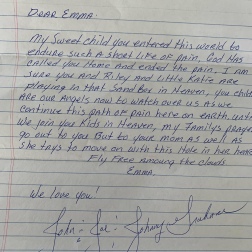 DEAR EMMA:
My Sweet child you entered this world to
endure such a short life of pain, God Has
called you Home and ended the pain. I am
sure you And Riley and Little Katie Are
playing in that SandBox in Heaven, you children
ARE our Angels now to watch over us As we
Continue this path of pain here on earth, until
We join you Kids in Heaven, my family's prayers
go out to you But to your mom As well As
she trys to move on with this Hole in her heart
Fly Free among the clouds
EMMA.
We love you!
John &